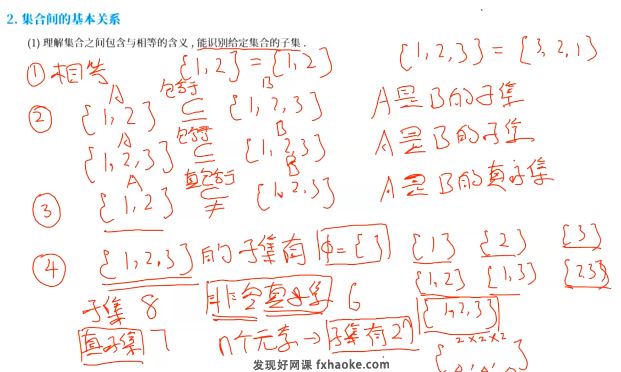 2. 集合间的基本关系
(1) 理解集合之间包含与相等的含义，能识别给定集合的子集.
① 相等 {1,2} = {1,2} {1,2,3} = {3,2,1}
A 包含于 B
② {1,2} ⊆ {1,2,3} A是B的子集
A 包含于 B
{1,2,3} ⊆ {1,2,3} A是B的子集
A 真包含于 B
③ {1,2} ⊊ {1,2,3} A是B的真子集
④ {1,2,3} 的子集有 ϕ={ } {1} {2} {3}
{1,2} {1,3} {2,3}
子集 8 非空真子集 6 {1,2,3}
真子集 7 n个元素→子集有2ⁿ 2×2×2
发现好网课 fxhaoke.com